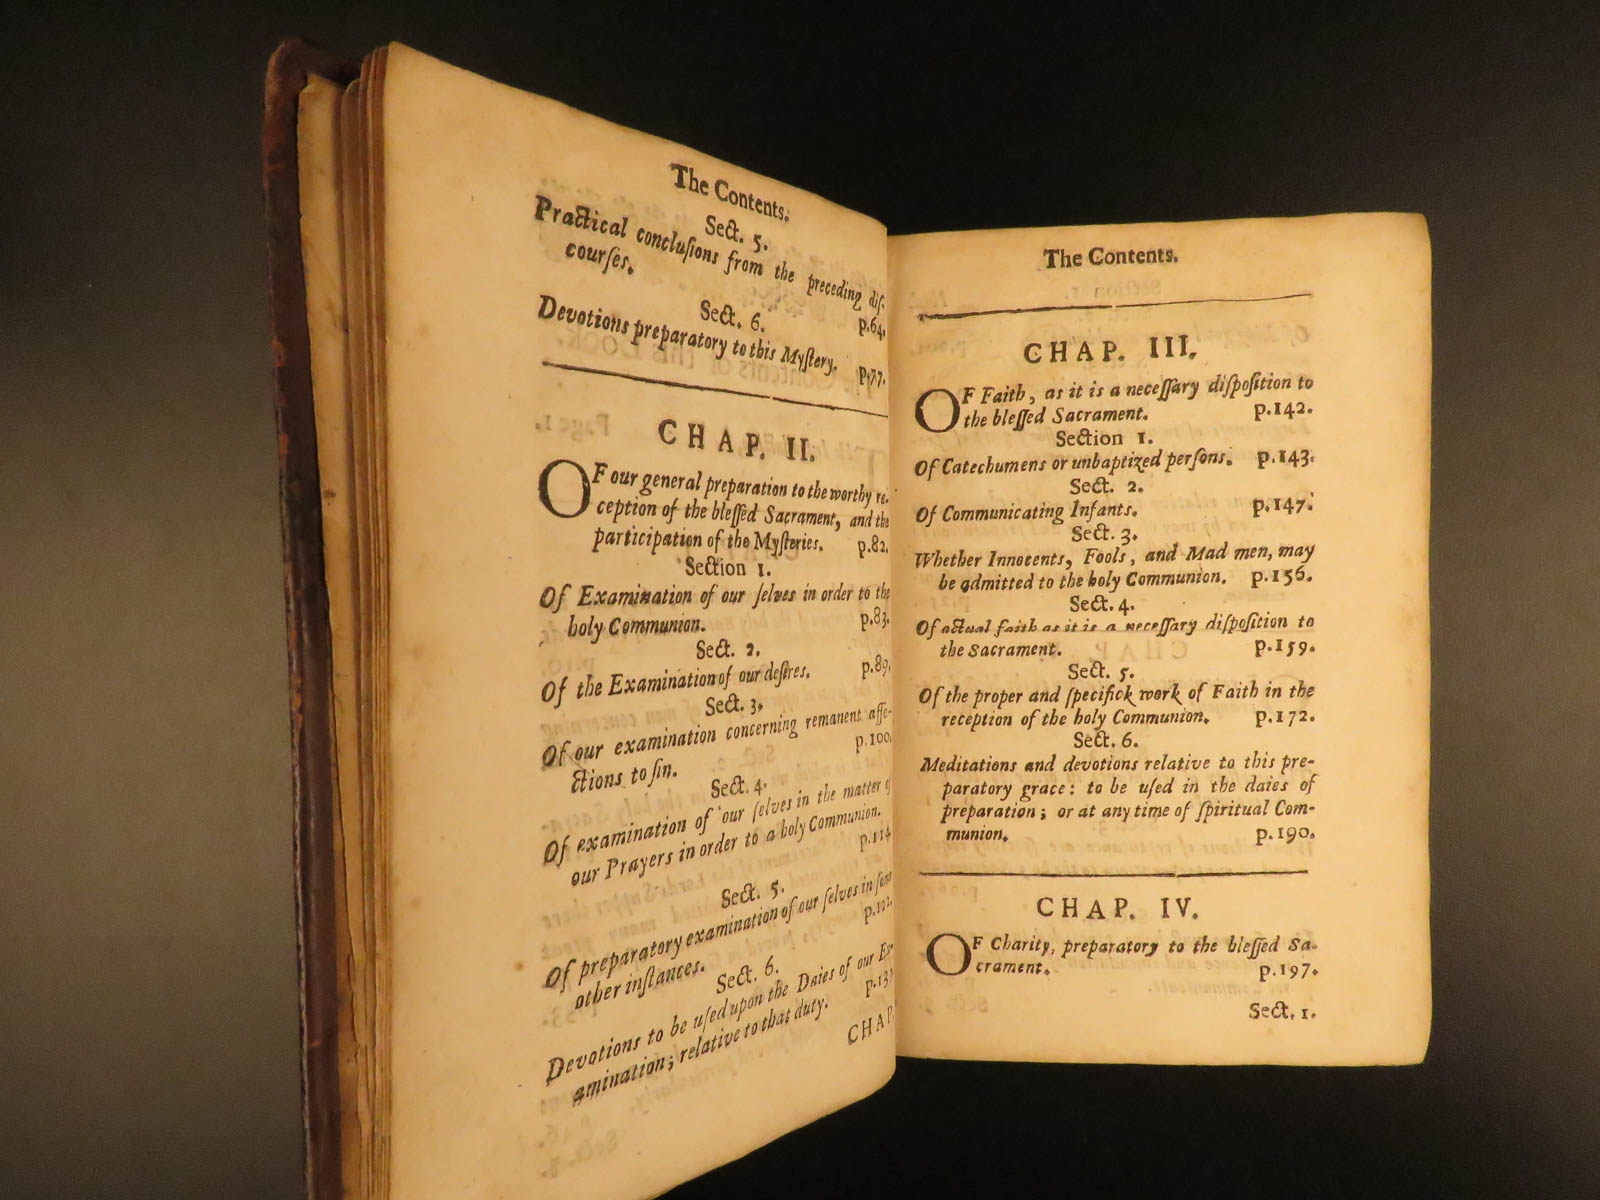 The Contents.
Sect. 5.
Practical concluſions from the preceding diſ-
courſes. p.64.
Sect. 6.
Devotions preparatory to this Myſtery. p.77.
CHAP. II.
OF our general preparation to the worthy re-
ception of the bleſſed Sacrament, and the
participation of the Myſteries. p.82.
Section 1.
Of Examination of our ſelves in order to the
holy Communion. p.83.
Sect. 2.
Of the Examination of our deſires. p.89.
Sect. 3.
Of our examination concerning remanent affe-
ctions to ſin. p.100.
Sect. 4.
Of examination of our ſelves in the matter of
our Prayers in order to a holy Communion. p.114
Sect. 5.
Of preparatory examination of our ſelves in ſome
other inſtances. p.122.
Sect. 6.
Devotions to be uſed upon the Daies of our Ex-
amination; relative to that duty.
CHAP.
The Contents.
CHAP. III.
OF Faith, as it is a neceſſary diſpoſition to
the bleſſed Sacrament. p.142.
Section 1.
Of Catechumens or unbaptized perſons. p.143.
Sect. 2.
Of Communicating Infants. p.147.
Sect. 3.
Whether Innocents, Fools, and Mad men, may
be admitted to the holy Communion. p.156.
Sect. 4.
Of actual faith as it is a neceſſary diſpoſition to
the Sacrament. p.159.
Sect. 5.
Of the proper and ſpecifick work of Faith in the
reception of the holy Communion. p.172.
Sect. 6.
Meditations and devotions relative to this pre-
paratory grace: to be uſed in the daies of
preparation; or at any time of ſpiritual Com-
munion. p.190.
CHAP. IV.
OF Charity, preparatory to the bleſſed Sa-
crament. p.197.
Sect. 1.